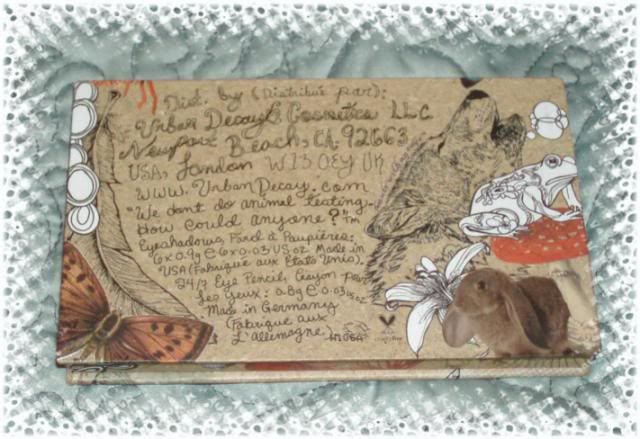 Dist. by (Distribué par):
Urban Decay® Cosmetics LLC
Newport Beach, CA 92663
USA, London W13 0EY UK
www.UrbanDecay.com
"We don't do animal testing.
How could anyone?"™
Eyeshadows, Fard à Paupières:
6x 0.9g ℮ 6x 0.03 US oz Made in
USA (Fabriqué aux États Unis).
24/7 Eye Pencil, Crayon pour
Les Yeux: 0.8g ℮ 0.03 US oz
Made in Germany
(Fabriqué aux
L'allemagne)